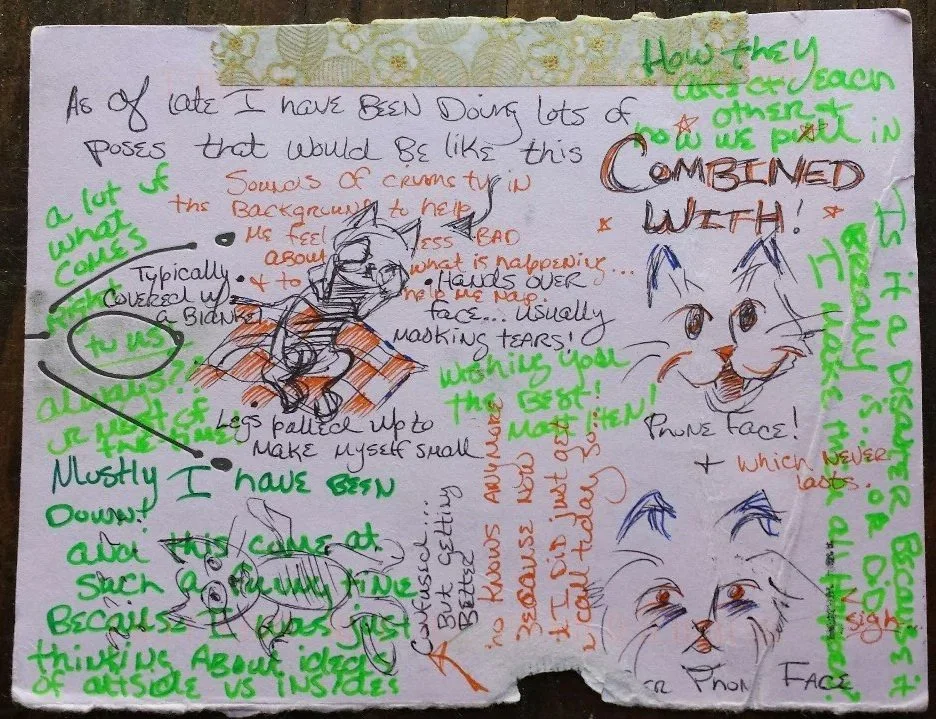 As of late I have BEEN Doing lots of
poses that would Be like this
Sounds of in
the BACKGROUND to help
ME feel less BAD
about what is happening...
& to help me nap.
Typically
covered w/
a Blanket
HANDS OVER
face... usually
masking tears!
Legs pulled up to
make myself small
COMBINED
WITH!
PHONE FACE!
+ which NEVER
lasts.
sigh...
PHONE FACE
Confused...
But getting
Better
no KNOWS ANYMORE
BECAUSE NOW
I DID just get
a call today so...!
How they
each
other &
how we pull in
a lot of
what
comes
Right
to us
always??
or most of
the time?
wishing you
the Best!
Mostly I have BEEN
Down!
and this came at
such a funny time
Because I was just
thinking about ideas
of outside vs insides
Is it a DISASTER BECAUSE it
REALLY is... or DID
I make them all Happen?